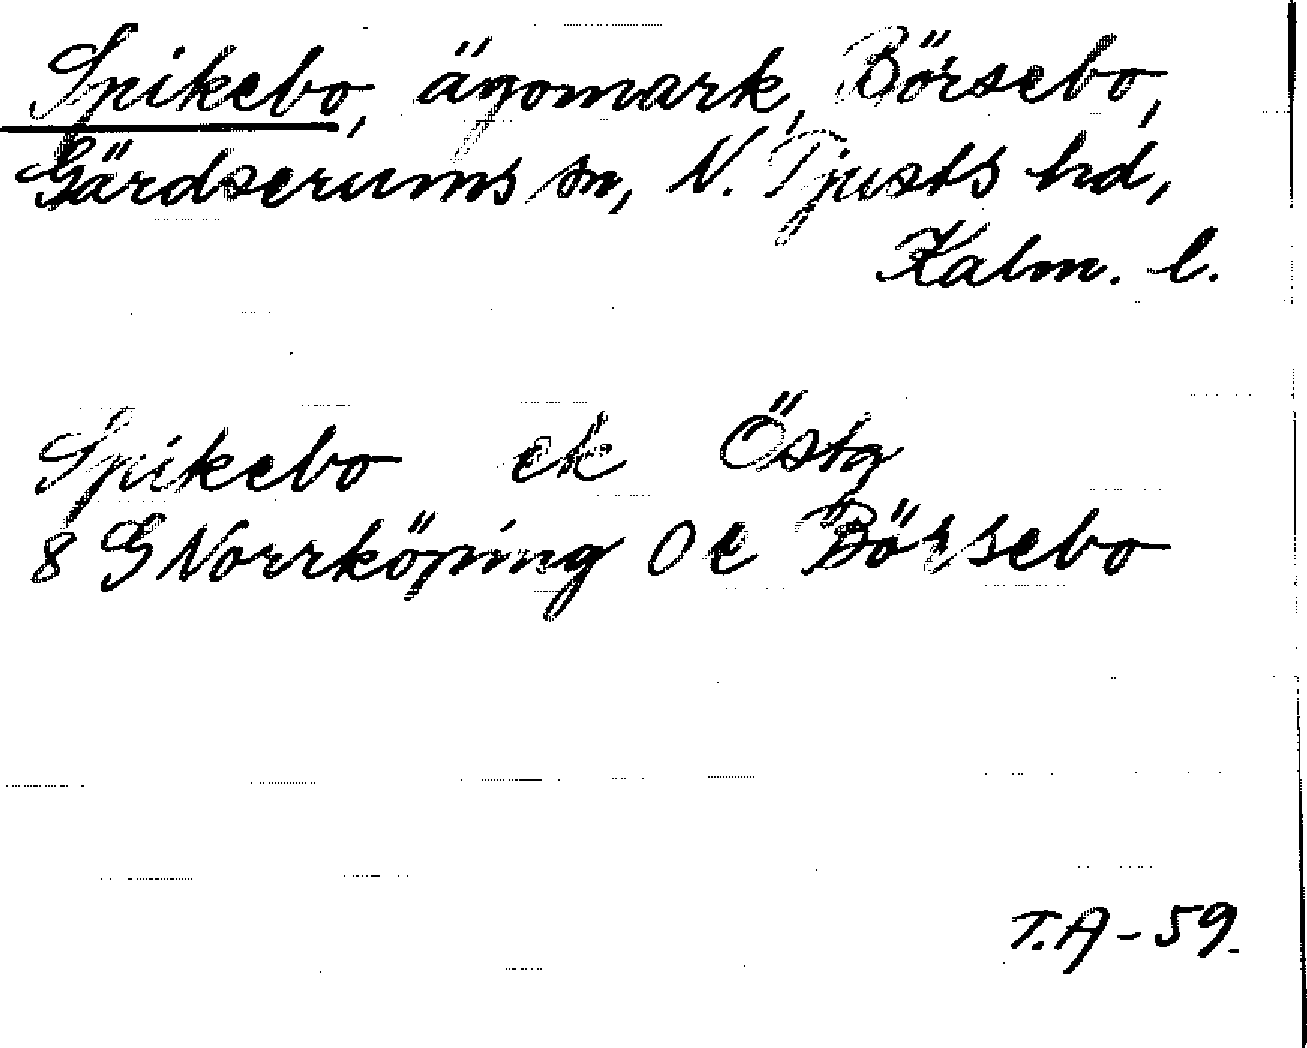 Spikebo, ägomark, Börsebo,
Gärdserums sn, N. Tjusts hd,
Kalm. l.
Spikebo ek Östg
8 G Norrköping 0 e Börsebo
T.A-59.